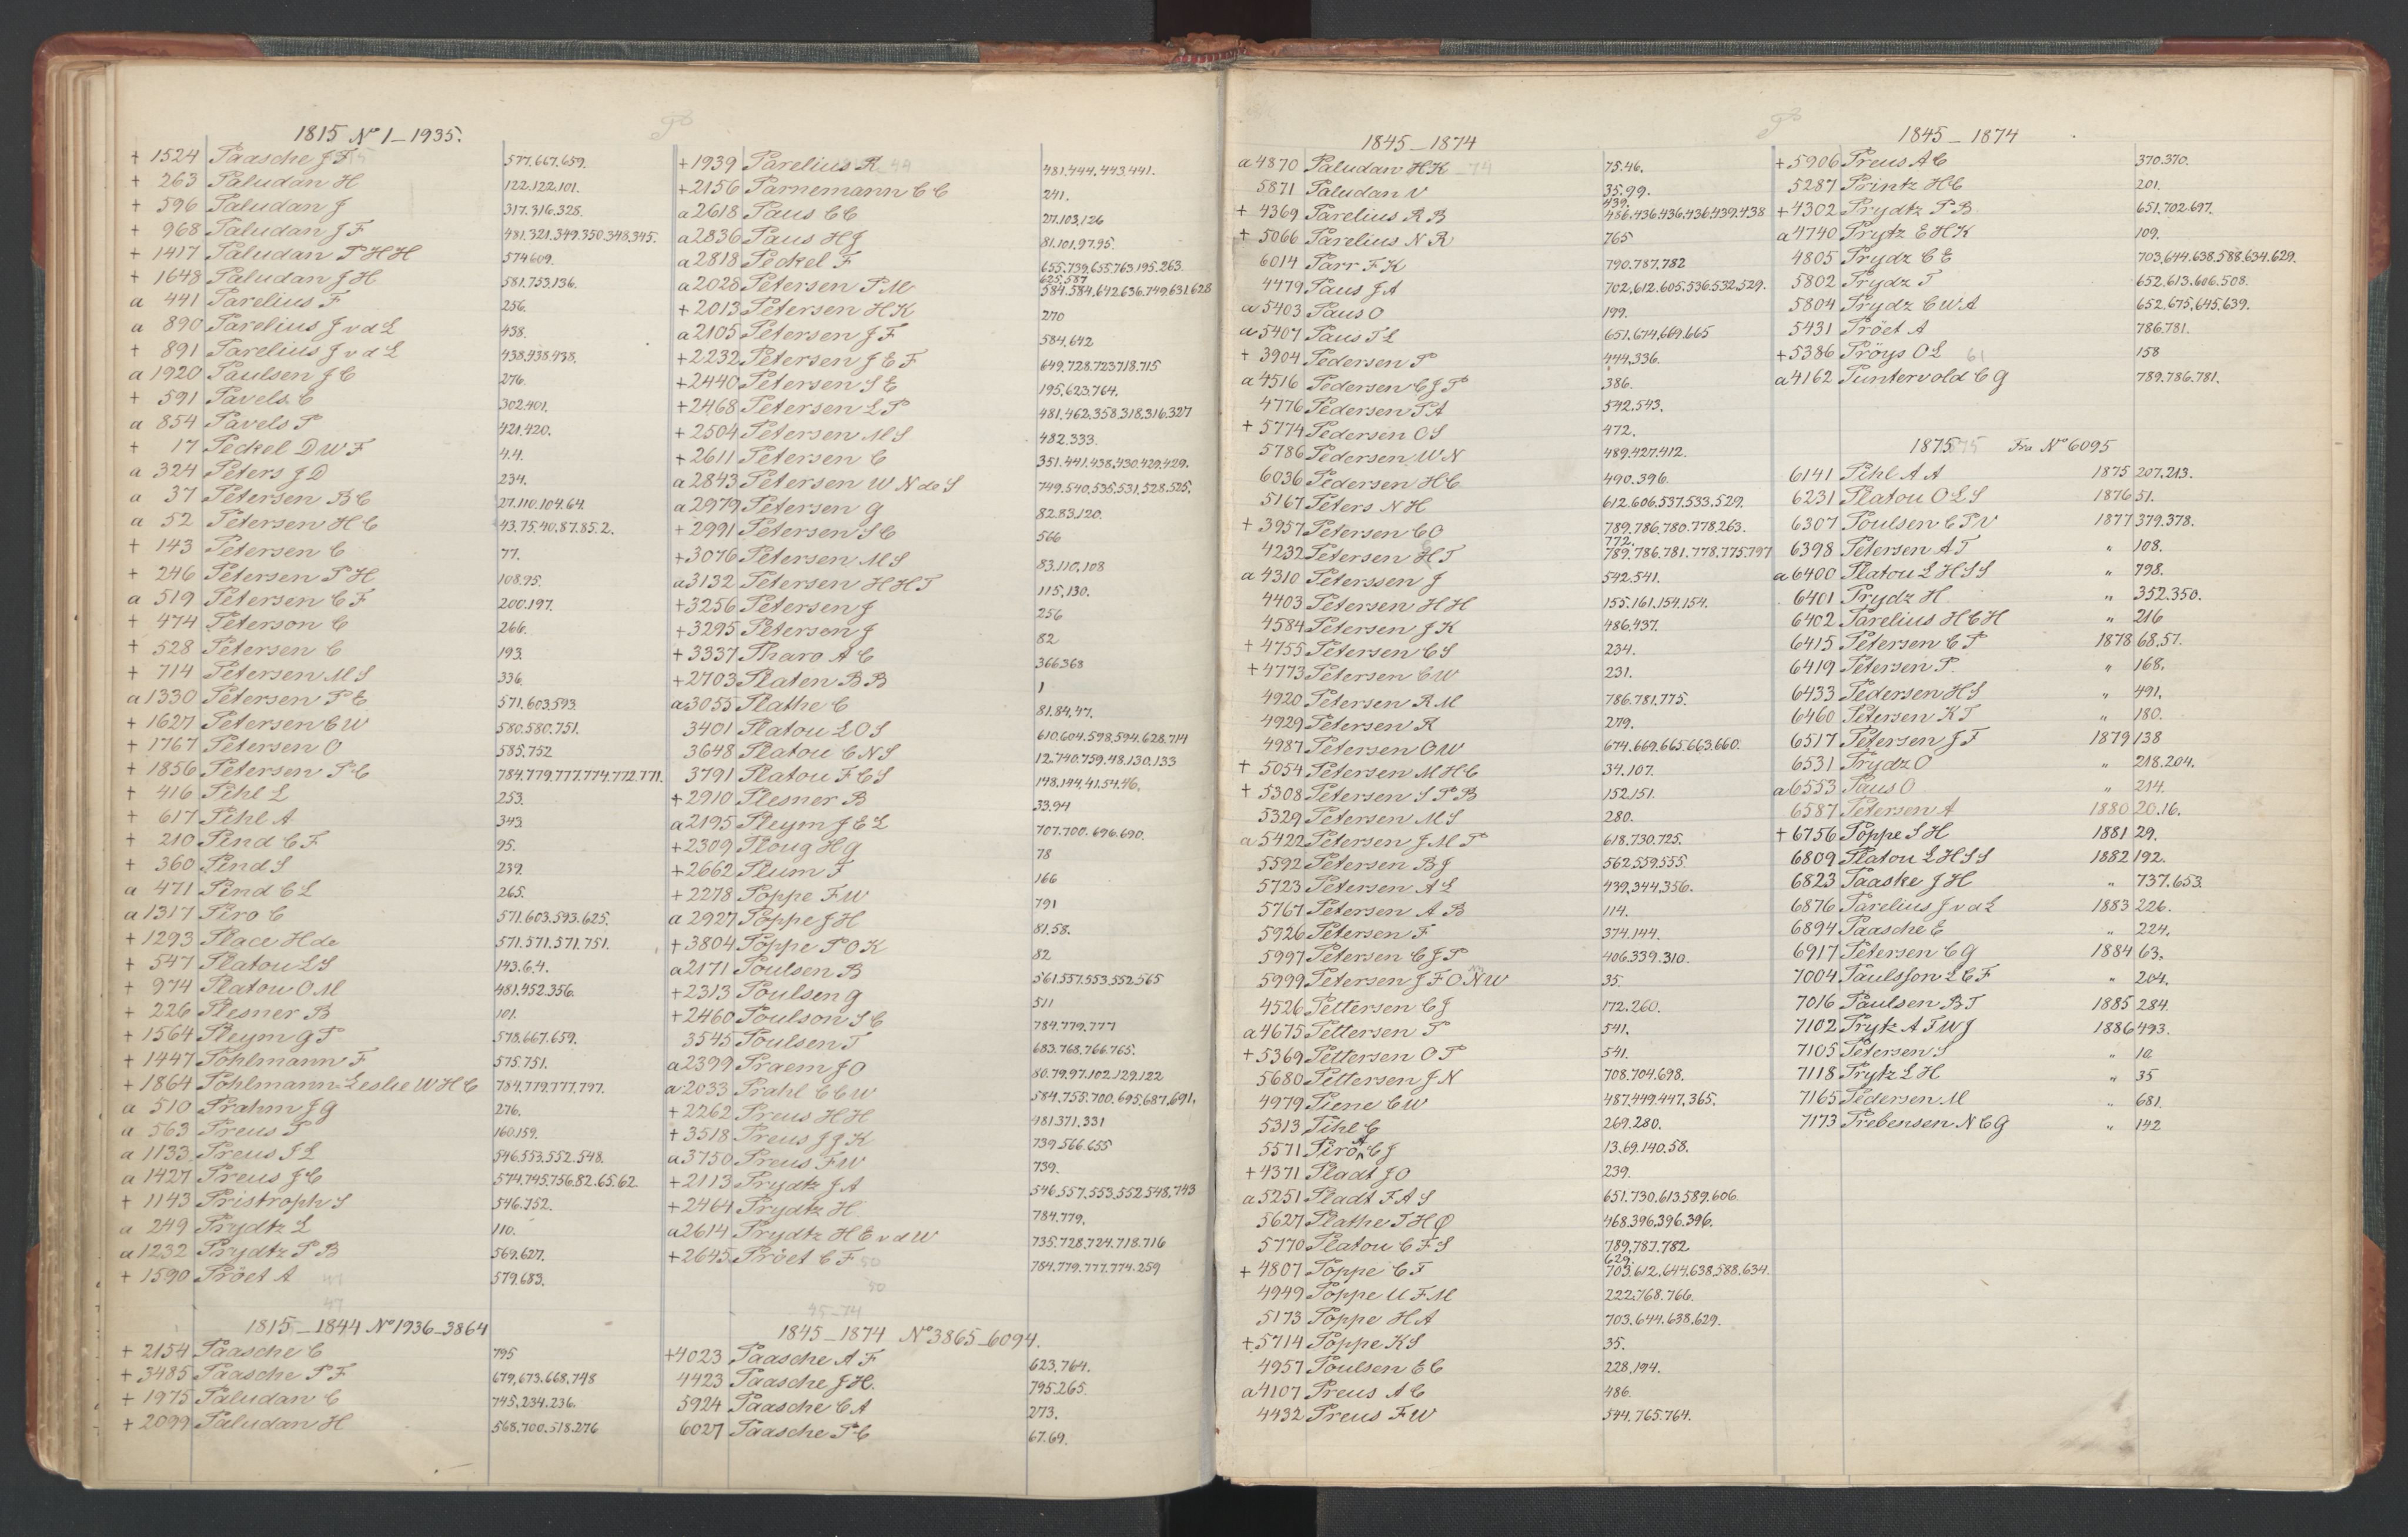 1815 No 1_1935.
+ 1524 Paasche J F 577.667.659.
+ 263 Paludan H 122.122.101.
+ 596 Paludan J 317.316.328.
+ 968 Paludan J F 481.321.349.350.348.345.
+ 1417 Paludan P H H 574.609.
+ 1648 Paludan J H 581.753.136.
a 441 Parelius F 256.
a 890 Parelius J v d L 438.
+ 891 Parelius J v d L 438.438.438.
a 1920 Paulsen J C 276.
+ 591 Pavels C 302.401.
a 854 Pavels P 421.420.
+ 17 Peckel D W F 4.4.
a 324 Peters J D 234.
a 37 Petersen B C 27.110.104.64.
a 52 Petersen H C 43.75.40.87.85.2.
+ 143 Petersen C 77.
+ 246 Petersen P H 108.95.
a 519 Petersen C F 200.197.
+ 474 Peterson C 266.
+ 528 Petersen C 193.
+ 714 Petersen M S 336.
a 1330 Petersen P E 571.603.593.
+ 1627 Petersen C W 580.580.751.
+ 1767 Petersen O 585.752
+ 1856 Petersen P C 784.779.777.774.772.771.
+ 416 Pihl L 253.
+ 617 Pihl A 343.
+ 210 Pind C F 95.
+ 360 Pind S 239.
a 471 Pind C L 265.
a 1317 Piro C 571.603.593.625.
+ 1293 Place H de 571.571.571.751.
+ 547 Platou L S 143.6.4.
+ 974 Platou O M 481.452.356.
+ 226 Plesner B 101.
+ 1564 Pleym G P 578.667.659.
+ 1447 Pohlmann F 575.751.
+ 1864 Pohlmann Leslie W H C 784.779.777.797.
a 510 Prahm J G 276.
a 563 Preus P 160.159.
a 1133 Preus J L 546.553.552.548.
a 1427 Preus J C 574.745.756.82.65.62
+ 1143 Pristroph S 546.752.
a 249 Prydtz L 110.
a 1232 Prydtz P B 569.627.
+ 1590 Pröet A 579.683.
1815_1844 No 1936_3864
+ 2154 Paasche C 795
+ 3485 Paasche P F 679.673.668.748
+ 1975 Paludan C 745.234.236.
+ 2099 Paludan H 568.700.518.276
+ 1939 Parelius R 481.444.443.441.
+ 2156 Parnemann C C 241.
a 2618 Paus C C 27.103.126
a 2836 Paus H J 81.101.97.95.
a 2818 Peckel F 655.739.655.763.195.263.
625.587
a 2028 Petersen P M 584.584.642.636.749.631.628
+ 2013 Petersen H K 270
a 2105 Petersen J F 584.642
+ 2232 Petersen J E F 649.728.723.718.715
+ 2440 Petersen S E 195.623.764.
+ 2468 Petersen L P 481.462.358.318.316.327
+ 2504 Petersen M S 482.333.
+ 2611 Petersen C 351.441.438.430.429.429.
a 2843 Petersen W N de S 749.540.535.531.528.525.
a 2979 Petersen G 82.83.120.
+ 2991 Petersen S C 566
+ 3076 Petersen M S 83.110.108
a 3132 Petersen H H T 115.130.
+ 3256 Petersen J 256
+ 3295 Peterson J 82
+ 3337 Pharo A C 366.368
+ 2703 Platen B B 1
a 3055 Plathe C 81.84.47.
3401 Platou L O S 610.604.598.594.628.714
3648 Platou C N S 12.740.759.48.130.133
3791 Platou F C S 148.144.41.54.46.
+ 2910 Plesner B 33.94
a 2195 Pleym J E L 707.700.696.690.
+ 2309 Ploug H G 78
+ 2662 Plum F 166
+ 2278 Poppe F W 791
a 2927 Poppe J H 81.58.
+ 3804 Poppe P O K 82
a 2171 Poulsen B 561.557.553.552.565
+ 2313 Poulsen G 511
+ 2460 Poulson S C 784.779.777
3545 Poulsen T 683.768.766.765.
a 2399 Praem J O 80.79.97.102.129.122
a 2033 Prahl C C W 584.755.700.695.687.691.
+ 2262 Preus H H 481.371.331
+ 3518 Preus J J K 739.566.655
a 3750 Preus F W 739.
+ 2113 Prydtz J A 546.557.553.552.548.743
+ 2464 Prydtz H 784.779.
a 2614 Prydtz H E v d W 735.728.724.718.716
+ 2645 Pröet C F 50 784.779.777.774.259
50
45_74
1845_1874 No 3865_6094.
+ 4023 Paasche A F 623.764.
4423 Paasche J H. 795.265.
5924 Paasche C A 273.
6027 Paasche P C 67.69.
1845_1874
a 4870 Paludan H K _74 75.46.
5871 Paludan V 35.99.
439.
+ 4369 Parelius R B 486.436.436.436.439.438
+ 5066 Parelius N R 765
6014 Parr F K 790.787.782
4479 Paus J A 702.612.605.536.532.529.
a 5403 Paus O 199.
a 5407 Paus T L 651.674.669.665
+ 3904 Pedersen P 444.336.
a 4516 Pedersen C J P 386.
4776 Pedersen P A 542.543.
+ 5774 Pedersen O S 472.
5786 Pedersen W N 489.427.412.
6036 Pedersen H C 490.396.
5167 Peters N H 612.606.537.533.529.
+ 3957 Petersen C O 789.786.780.778.263.
772.
4232 Petersen H T 789.786.781.778.775.797
a 4310 Peterssen J 542.541.
4403 Petersen H H 155.161.154.154.
4584 Petersen J K 486.437.
+ 4755 Petersen C S 234.
+ 4773 Petersen C W 231.
4920 Petersen R M 786.781.775.
4929 Petersen K 279.
4987 Petersen O W 674.669.665.663.660.
+ 5054 Petersen M H C 34.107.
+ 5308 Petersen S P B 152.151.
5329 Petersen M S 280.
a 5422 Petersen J M P 618.730.725.
5592 Petersen B J 562.559.555.
5723 Petersen A L 439.344.356.
5767 Petersen A B 114.
5926 Petersen F 374.144.
5997 Petersen C J P 406.339.310.
5999 Petersen J F O N W 35.
4526 Pettersen C J 172.260.
a 4675 Pettersen P 541.
+ 5369 Pettersen O P 541.
5680 Pettersen J N 708.704.698.
4979 Piene C W 487.449.447.365.
5313 Pihl C 269.280.
5571 Piro A C J 13.69.140.58.
+ 4371 Pladt J O 239.
a 5251 Pladt F A S 651.730.613.589.606.
5627 Plathe T H Ø 468.396.396.396.
5770 Platou C F S 789.787.782
629.
+ 4807 Poppe C F 703.612.644.638.588.634.
4949 Poppe U F M 222.768.766.
5173 Poppe H A 703.644.638.629.
+ 5714 Poppe K S 35.
4957 Poulsen E C 228.194.
a 4107 Preus A C 486.
4432 Preus F W 544.765.764.
1845_1874
+ 5906 Preus A C 370.370.
5287 Printz H C 201.
+ 4302 Prydtz P B 651.702.697.
a 4740 Prytz E H K 109.
4805 Prydz C E 703.644.638.588.634.629.
5802 Prydz T 652.613.606.508.
5804 Prydz C W A 652.675.645.639.
5431 Pröet A 786.781.
+ 5386 Pröys O L 61 158
a 4162 Puntervold C G 789.786.781.
1875 Fra No 6095
6141 Pihl A A 1875 207.213.
6231 Platou O L S 1876 51.
6307 Poulsen C P V 1877 379.378.
6398 Petersen A T " 108.
a 6400 Platou L H S S " 798.
6401 Prydz H " 352.350.
6402 Parelius H C H " 216
6415 Petersen C P 1878 68.57.
6419 Petersen P. " 168.
6433 Pedersen H S " 491.
6460 Petersen K T " 180.
6517 Petersen J F 1879 138
6531 Prydz O " 218.204.
a 6553 Paus O " 214.
6587 Petersen A 1880 20.16.
+ 6756 Poppe S H 1881 29.
6809 Platou L H S S 1882 192.
6823 Paaske J H " 737.653.
6876 Parelius J v d L 1883 226.
6894 Paasche E " 224.
6917 Petersen C G 1884 63.
7004 Paulsson L C F " 204.
7016 Paulsen B T 1885 284.
7102 Prytz A F W J 1886 493.
7105 Petersen S " 10
7118 Prytz L H " 35
7165 Pedersen M " 681.
7173 Prebensen N C G " 142